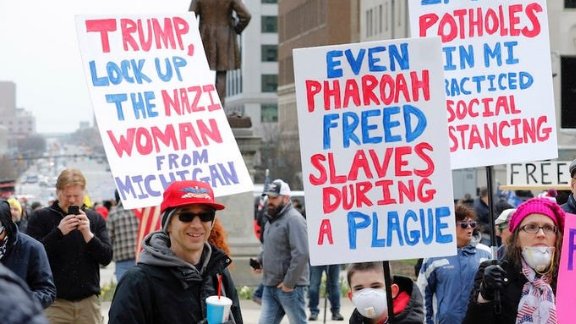 TRUMP,
LOCK UP
THE NAZI
WOMAN
FROM
MICHIGAN
EVEN
PHAROAH
FREED
SLAVES
DURING
A PLAGUE
POTHOLES
IN MI
PRACTICED
SOCIAL
DISTANCING
FREE